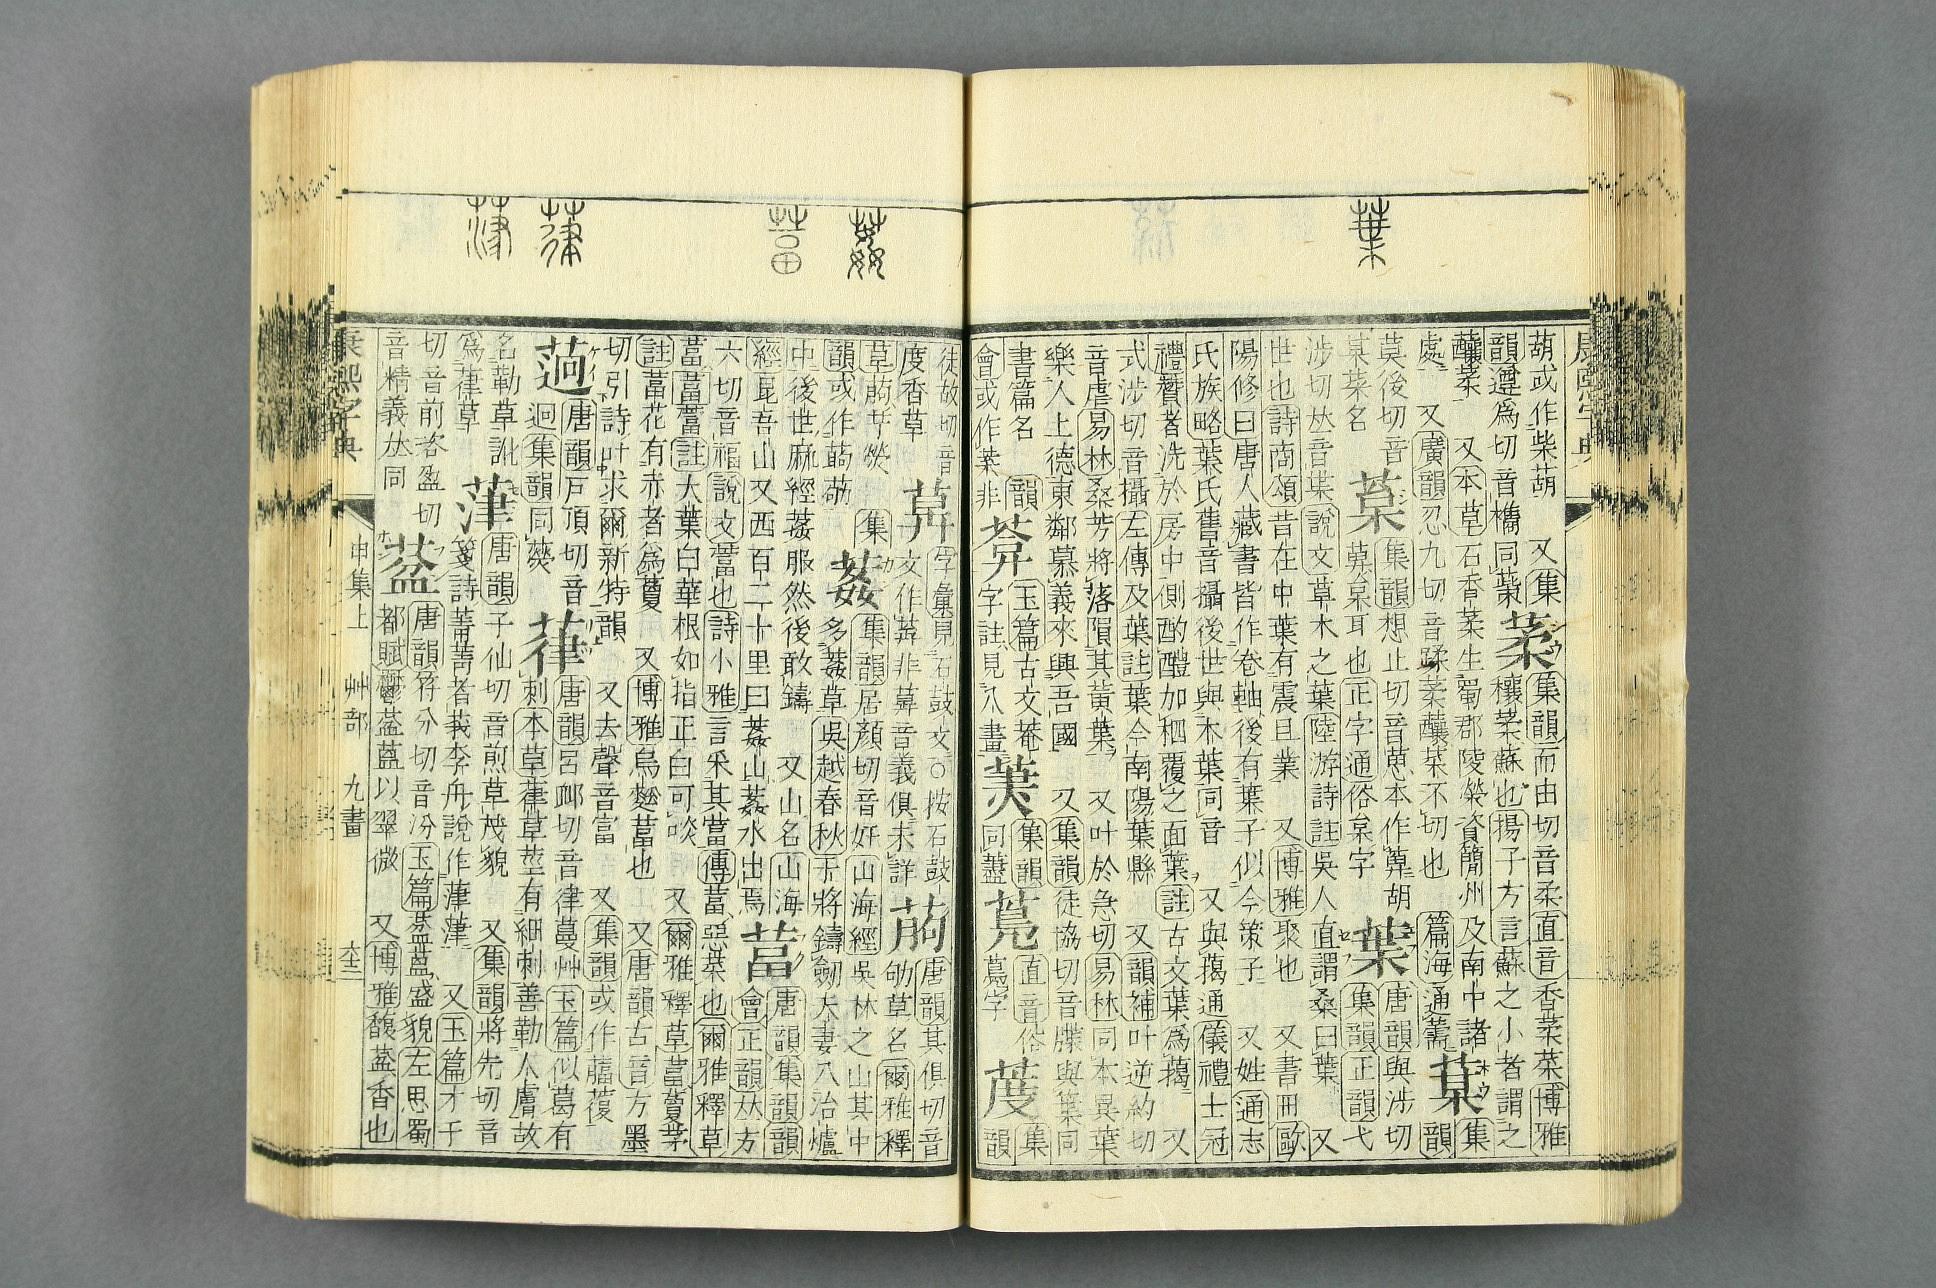 葫或作柴葫 又集
韻遵爲切音檇同蘂
葇 集韻而由切音柔直音香菜葇博雅
穰葇蘇也揚子方言蘇之小者謂之
釀葇 又本草石香葇生蜀郡陵榮資簡州及南中諸
處 又廣韻忍九切音蹂葇釀菜不切也 篇海通薵
集韻
莫後切音
某菜名
葈 集韻想止切音葸本作萛胡
萛枲耳也正字通俗枲字
葉 唐韻與涉切
集韻正韻弋
涉切𠀤音枼說文草木之葉陸游詩註吳人直謂桑曰葉 又
世也詩商頌昔在中葉有震且業 又博雅聚也 又書冊歐
陽修曰唐人藏書皆作卷軸後有葉子似今策子 又姓通志
氏族略葉氏舊音攝後世與木葉同音 又與擖通儀禮士冠
禮贊者洗於房中側酌醴加柶覆之面葉註古文葉爲擖 又
式涉切音攝左傳及葉註葉今南陽葉縣 又韻補叶逆約切
音虐易林桑芳將落隕其黃葉 又叶於急切易林同本異葉
樂人上德東鄰慕義來興吾國 又集韻徒協切音牒與䈎同
書篇名 韻
會或作枼非
葊 玉篇古文菴
字註見八畫
集韻
同藎
萈 直音俗
蔦字
集
韻
徒故切音
度香草
字彙見石鼓文○按石鼓
文作䓑非葬音義俱未詳
萮 唐韻其俱切音
劬草名爾雅釋
草萮芌熒 集
韻或作蒟
葌 集韻居顏切音奸山海經吳林之山其中
多葌草吳越春秋干將鑄劒夫妻八治爐
中後世麻絰葌服然後敢鑄 又山名山海
經昆吾山又西百二十里曰葌山葌水出焉
葍 唐韻集韻韻
會正韻𠀤方
六切音福說文䔰也詩小雅言采其葍傳葍惡菜也爾雅釋草
葍䔰註大葉白華根如指正白可啖 又爾雅釋草葍藑茅
註葍花有赤者爲藑 又博雅烏麩葍也 又唐韻古音方墨
切引詩叶求爾新特韻 又去聲音富 又集韻或作䕎蕧
唐韻戶頂切音
迥集韻同䓇
葎 唐韻呂卹切音律蔓艸玉篇似葛有
刺本草葎草莖有細刺善勒人膚故
名勒草訛
爲葎草
葏 唐韻子仙切音煎草茂貌 又集韻將先切音
箋詩菁菁者莪李舟說作葏葏 又玉篇才于
切音前咨盈切
音精義𠀤同
葐 唐韻符分切音汾玉篇葐蒀盛貌左思蜀
都賦鬱葐蒀以翠微 又博雅馥葐香也
康熙字典
申集上 艸部 九畫